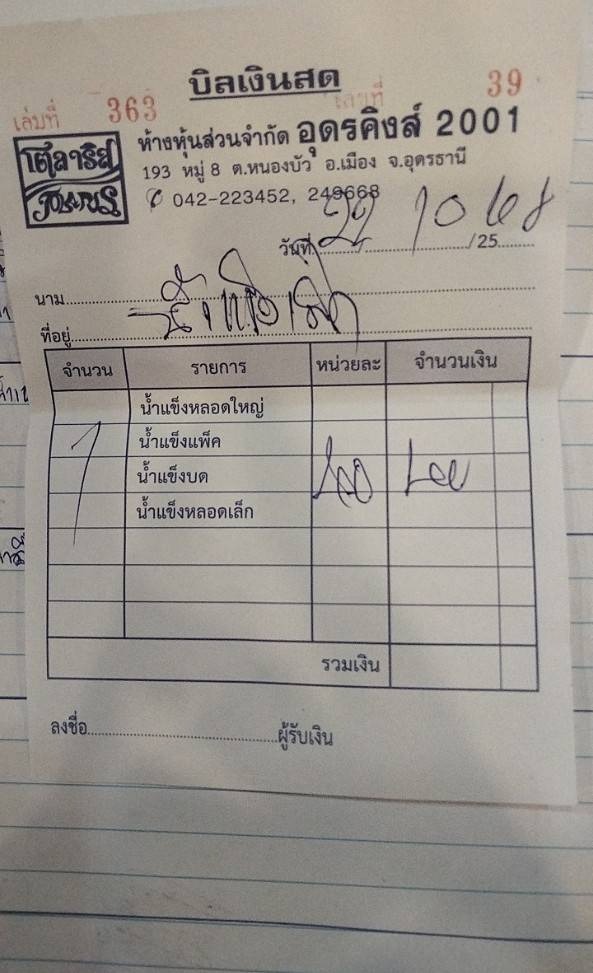 บิลเงินสด
เล่มที่ 363 เลขที่ 39
ห้างหุ้นส่วนจำกัด อุดรคิงส์ 2001
193 หมู่ 8 ต.หนองบัว อ.เมือง จ.อุดรธานี
042-223452, 249668
วันที่ 22 / 10 /25 68
นาม
ที่อยู่
จำนวน รายการ หน่วยละ จำนวนเงิน
น้ำแข็งหลอดใหญ่
1 น้ำแข็งแพ็ค
น้ำแข็งบด
น้ำแข็งหลอดเล็ก
รวมเงิน
ลงชื่อ ผู้รับเงิน